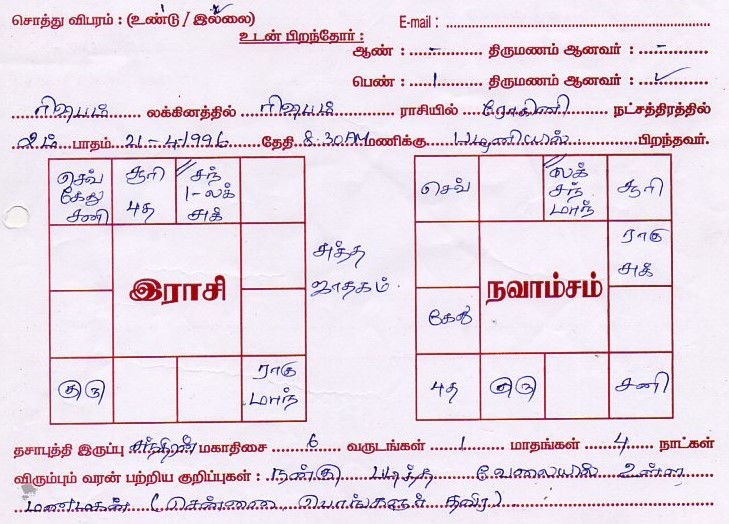 சொத்து விபரம் : (உண்டு / இல்லை) E-mail :
உடன் பிறந்தோர் :
ஆண் : - திருமணம் ஆனவர் : -
பெண் : 1 திருமணம் ஆனவர் : ✓
ரிஷபம் லக்கினத்தில் ரிஷபம் ராசியில் ரோகிணி நட்சத்திரத்தில்
2ம் பாதம் 21-4-1996 தேதி 8.30AM மணிக்கு பழனியில் பிறந்தவர்.
செவ் கேது சனி
சூரி புத
சந் 1-லக் சுக்
சுத்த ஜாதகம்
இராசி
குரு
ராகு மாந்
செவ்
லக் சந் மாந்
சூரி
ராகு சுக்
நவாம்சம்
கேது
புத
குரு
சனி
தசாபுத்தி இருப்பு சந்திரன் மகாதிசை 6 வருடங்கள் 1 மாதங்கள் 4 நாட்கள்
விரும்பும் வரன் பற்றிய குறிப்புகள் : நன்கு படித்த வேலையில் உள்ள
மணமகன் (சென்னை, பெங்களூர் தவிர)